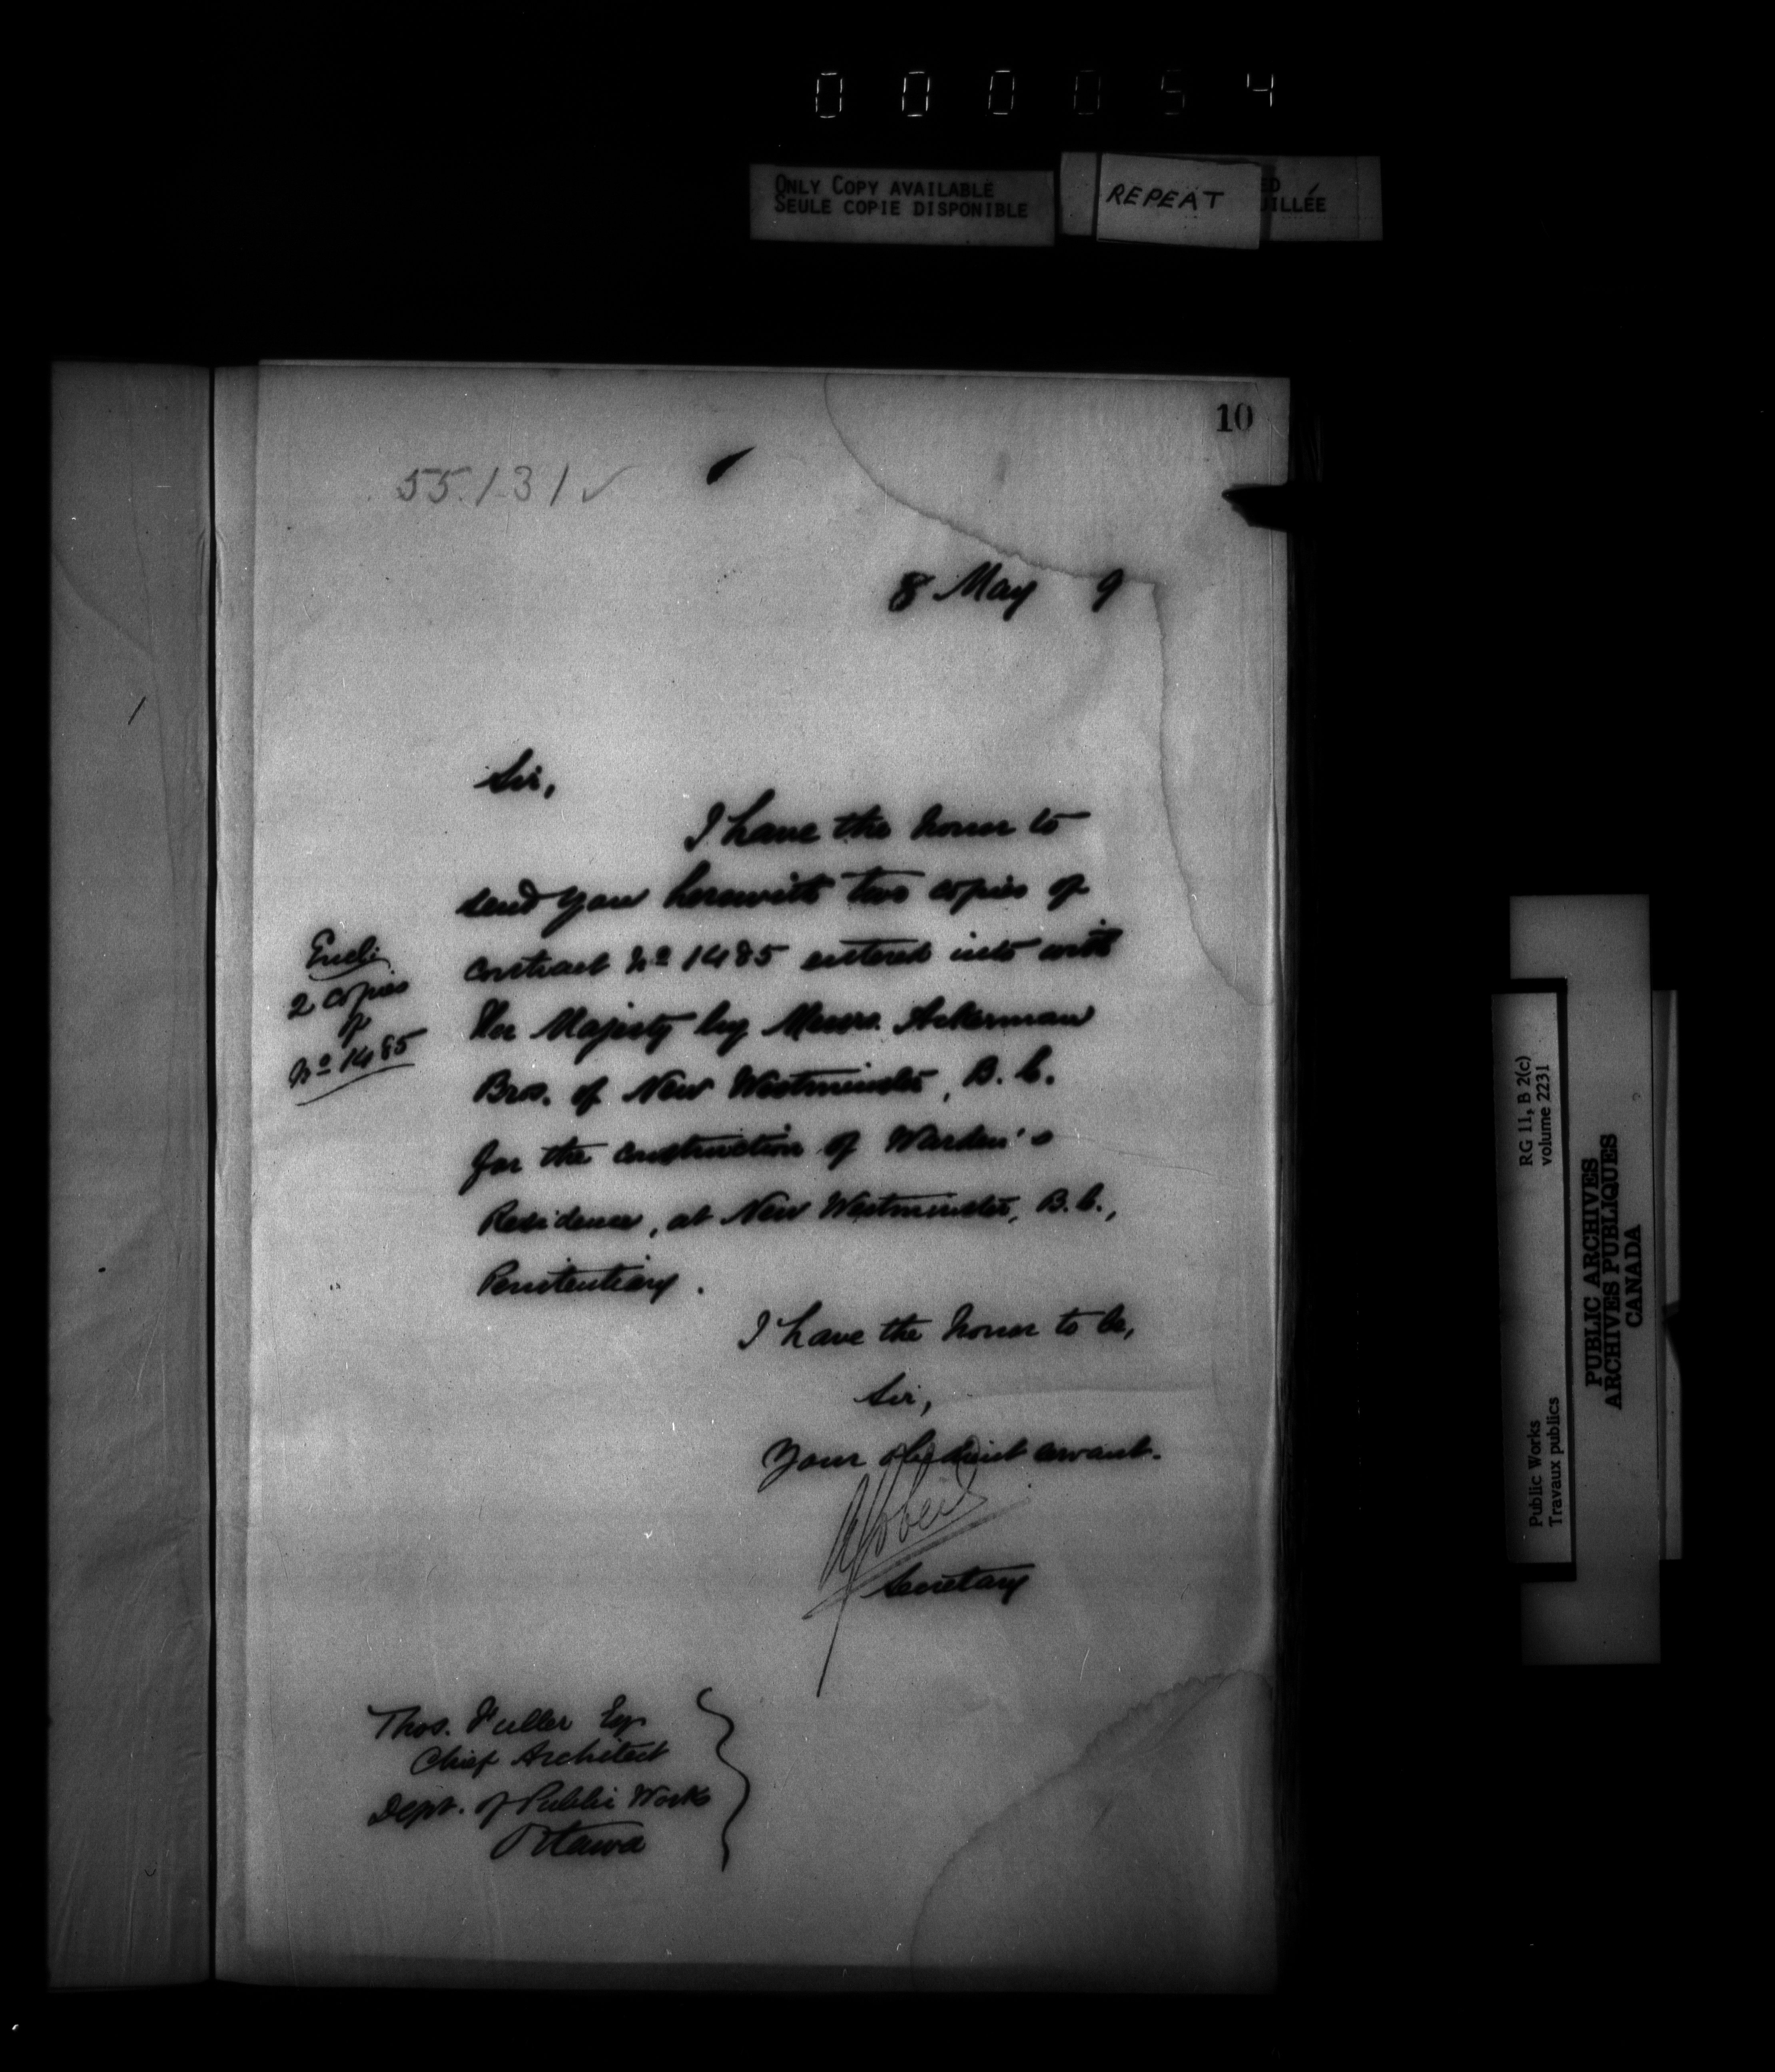 000054
ONLY COPY AVAILABLE
SEULE COPIE DISPONIBLE
REPEAT
ED
UILLÉE
10
55131 ✓
8 May 9
Sir,
I have the honor to
send you herewith two copies of
contract No 1485 entered into with
Her Majesty by Messrs. Ackerman
Bros. of New Westminster, B.C.
for the construction of Warden's
Residence, at New Westminster, B.C.,
Penitentiary.
Encl:
2 copies
of
No 1485
I have the honor to be,
Sir,
Your obedient servant.
Secretary
Thos. Fuller Esq
Chief Architect
Dept. of Public Works
Ottawa
RG 11, B 2(c)
volume 2231
Public Works
Travaux publics
PUBLIC ARCHIVES
ARCHIVES PUBLIQUES
CANADA